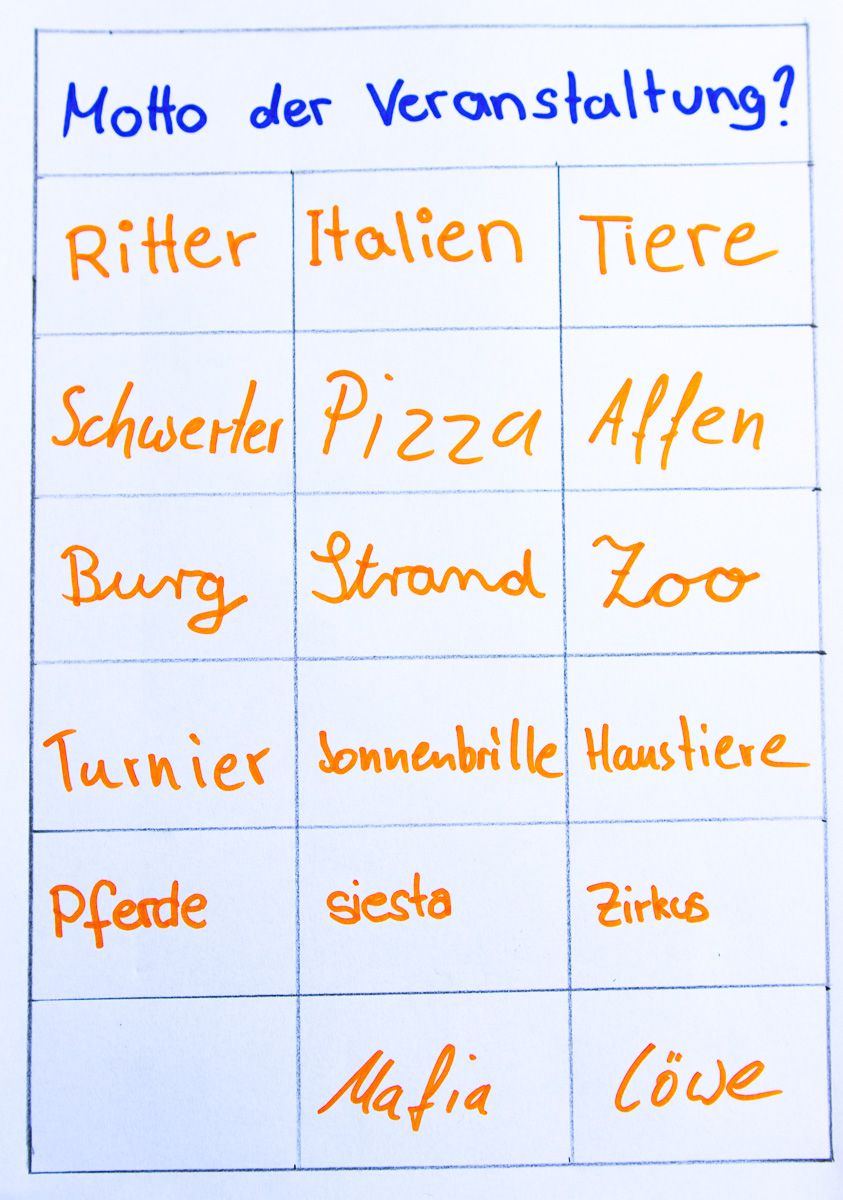 Motto der Veranstaltung?
Ritter Italien Tiere
Schwerter Pizza Affen
Burg Strand Zoo
Turnier Sonnenbrille Haustiere
Pferde siesta Zirkus
Mafia Löwe